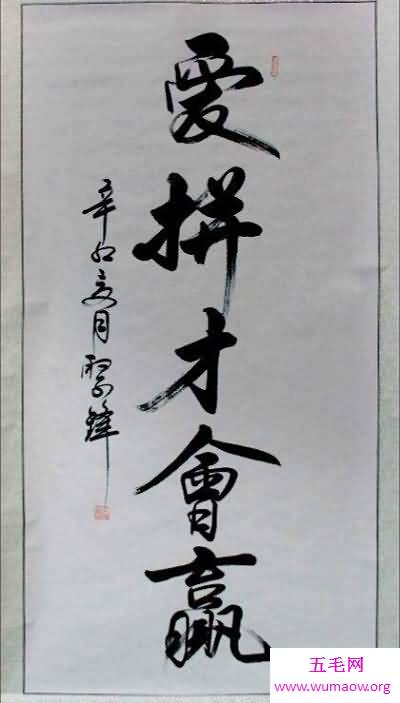 愛拼才會贏
辛卯夏月
五毛网
www.wumaow.org